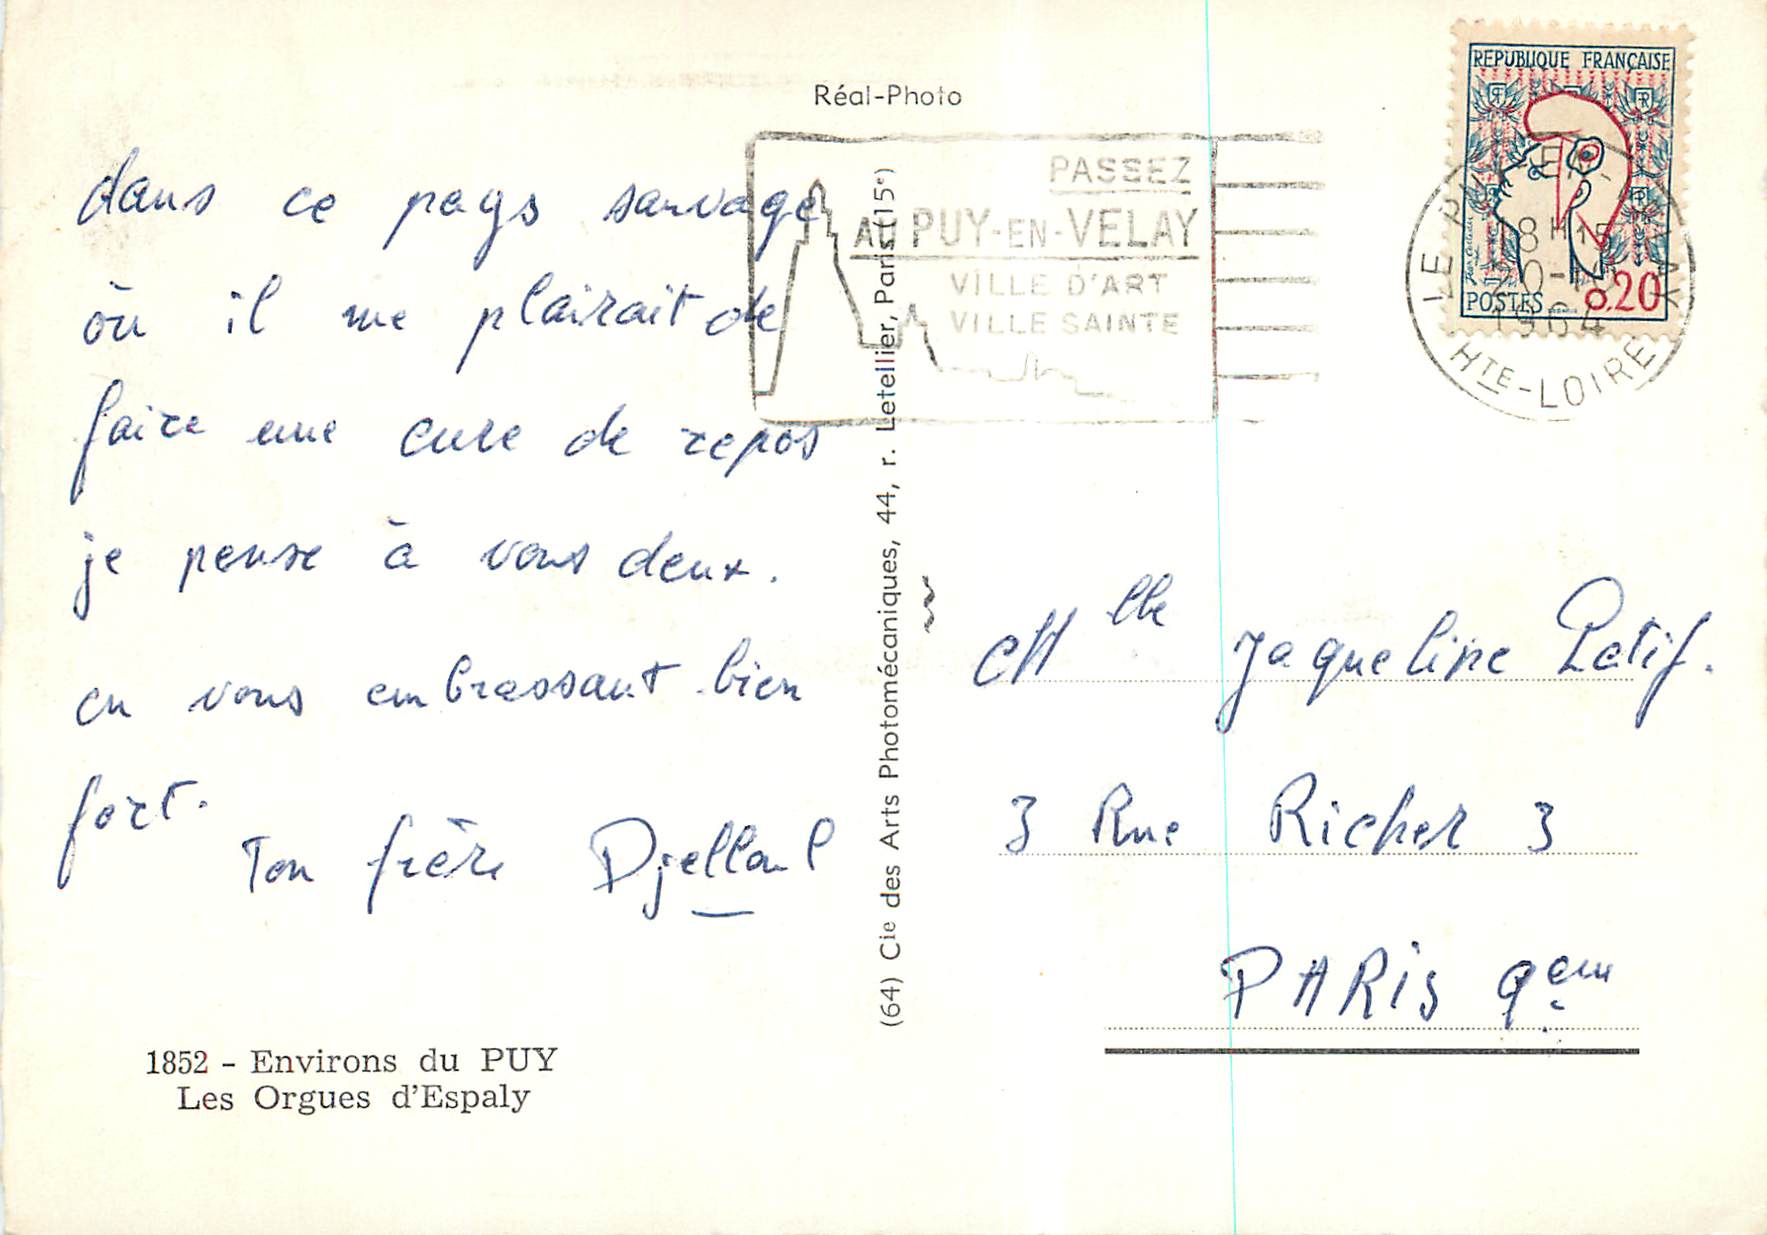 Réal-Photo
dans ce pays sauvage
où il me plairait de
faire une cure de repos
je pense à vous deux.
en vous embrassant bien
fort.
Ton frère Djelloul
1852 - Environs du PUY
Les Orgues d'Espaly
(64) Cie des Arts Photomécaniques, 44, r. Letellier, Paris (15e)
PASSEZ
AU PUY-EN-VELAY
VILLE D'ART
VILLE SAINTE
REPUBLIQUE FRANÇAISE
POSTES 0.20
LE PUY EN VELAY
18H15
1964
HTE-LOIRE
Mlle Jaqueline
3 Rue Richer 3
PARIS 9eme